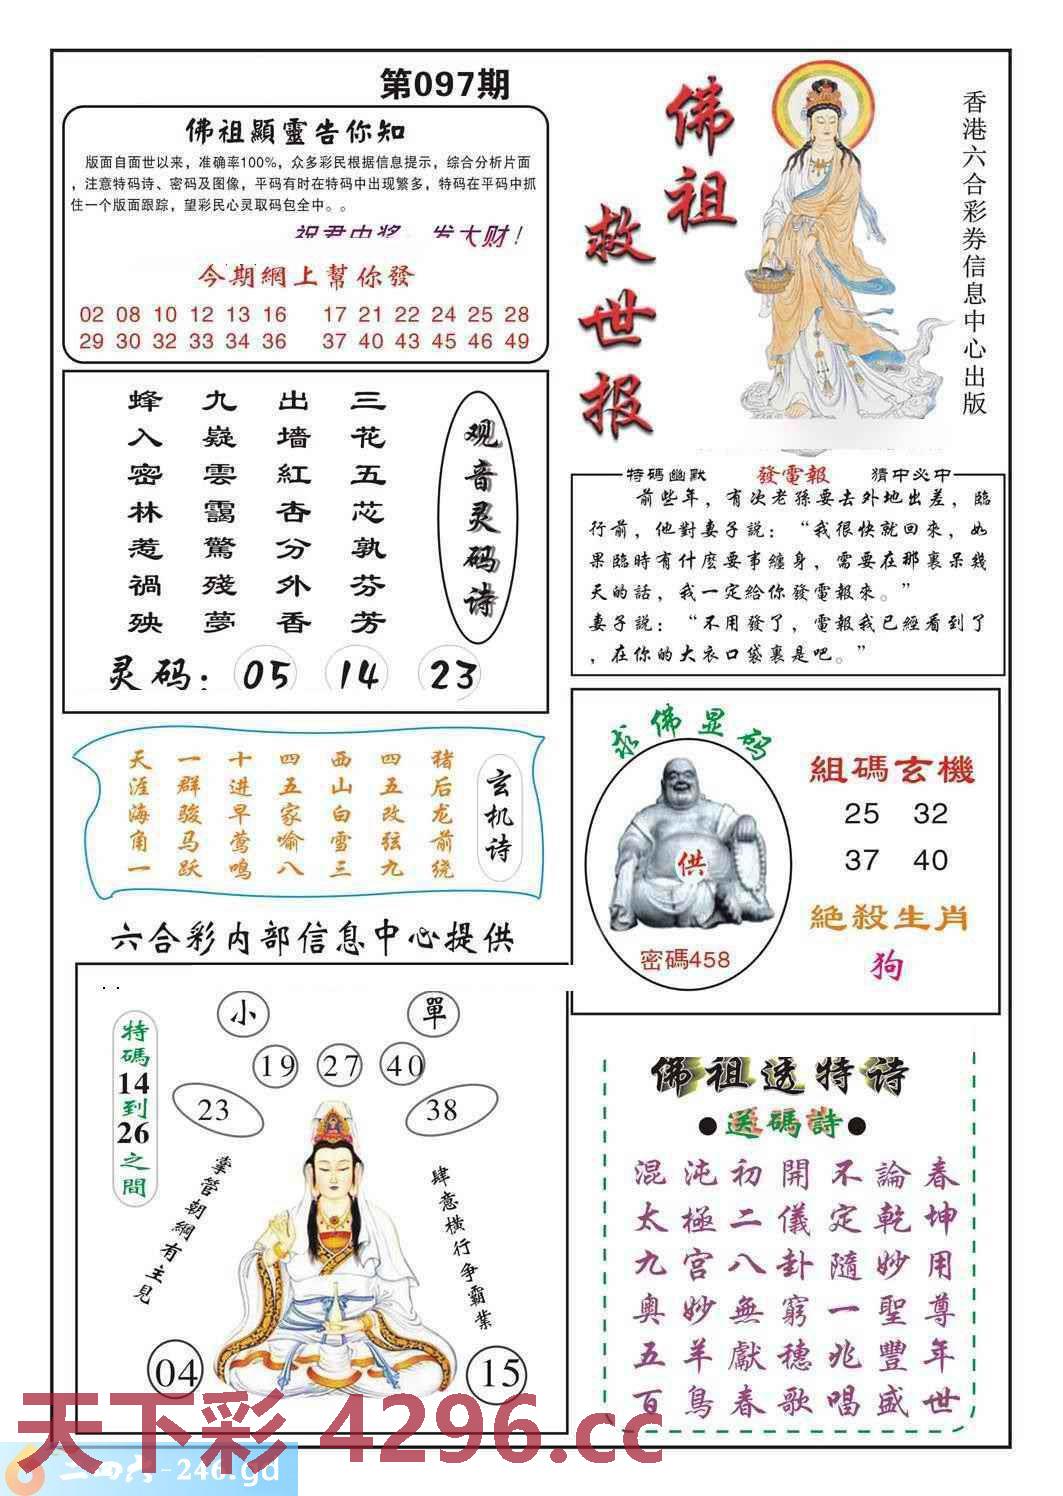 第097期
佛祖顯靈告你知
版面自面世以来，准确率100%，众多彩民根据信息提示，综合分析片面
，注意特码诗、密码及图像，平码有时在特码中出现繁多，特码在平码中抓
住一个版面跟踪，望彩民心灵取码包全中。。
祝君中奖，发大财！
今期網上幫你發
02 08 10 12 13 16 17 21 22 24 25 28
29 30 32 33 34 36 37 40 43 45 46 49
佛祖
救世报
香港六合彩券信息中心出版
观音灵码诗
三花五芯孰芬芳
出墻紅杏分外香
九嶷雲靄驚殘夢
蜂入密林惹禍殃
灵码：05 14 23
特碼幽默 發電報 猜中必中
前些年，有次老孫要去外地出差，臨
行前，他對妻子説：“我很快就回來，如
果臨時有什麽要事纏身，需要在那裏呆幾
天的話，我一定給你發電報來。”
妻子説：“不用發了，電報我已經看到了
，在你的大衣口袋裏是吧。”
玄机诗
猪后龙前绕
四五改弦九
西山白雪三
四五家喻八
十进早莺鸣
一群骏马跃
天涯海角一
求佛显码
供
密碼458
組碼玄機
25 32
37 40
絶殺生肖
狗
六合彩内部信息中心提供
小 單
19 27 40
23 38
特碼14到26之間
掌管朝綱有主見
肆意横行争霸業
04 15
佛祖透特诗
●送碼詩●
混沌初開不論春
太極二儀定乾坤
九宫八卦隨妙用
奥妙無窮一聖尊
五羊獻穗兆豐年
百鳥春歌唱盛世
天下彩 4296.cc
二四六-246.gd